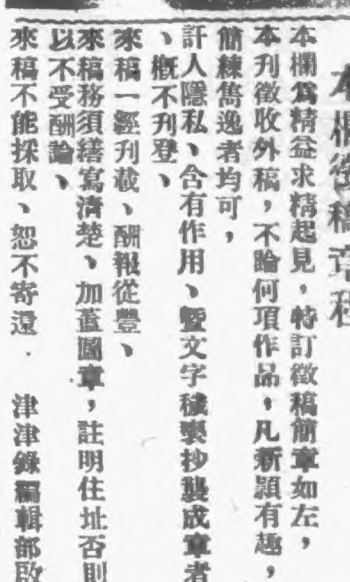 本欄徵稿章程
本欄爲精益求精起見，特訂徵稿簡章如左，
本刊徵收外稿，不論何項作品，凡新穎有趣，
簡練雋逸者均可，
訐人隱私、含有作用、暨文字穢褻抄襲成章者
、概不刊登、
來稿一經刊載、酬報從豐、
來稿務須繕寫清楚、加蓋圖章，註明住址否則
以不受酬論、
來稿不能採取、恕不寄還．　津津錄編輯部啟